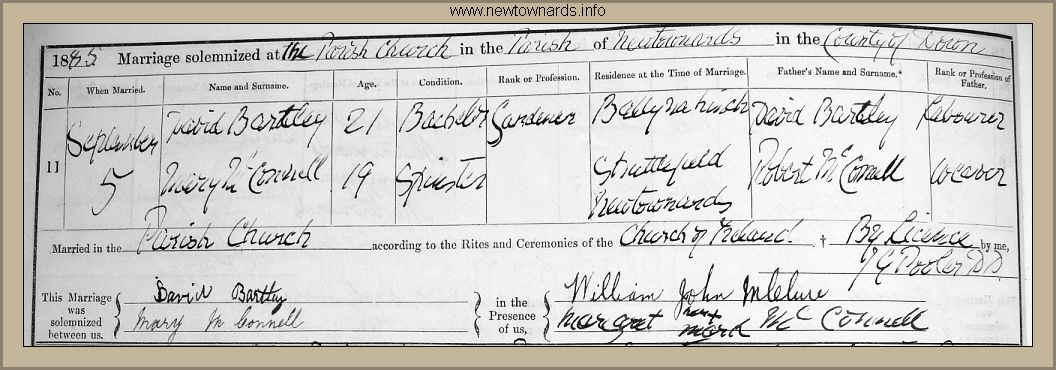 www.newtownards.info
1885 Marriage solemnized at the Parish Church in the Parish of Newtownards in the County of Down
No. When Married. Name and Surname. Age. Condition. Rank or Profession. Residence at the Time of Marriage. Father's Name and Surname.* Rank or Profession of Father.
11 September 5 David Bartley 21 Bachelor Gardener Ballynahinch David Bartley Labourer
Mary McConnell 19 Spinster Newtownards Robert McConnell Weaver
Married in the Parish Church according to the Rites and Ceremonies of the Church of Ireland. † By Licence by me,
Pooler DD
This Marriage was solemnized between us, David Bartley
Mary McConnell
in the Presence of us, William John McClure
Margaret her x mark McConnell